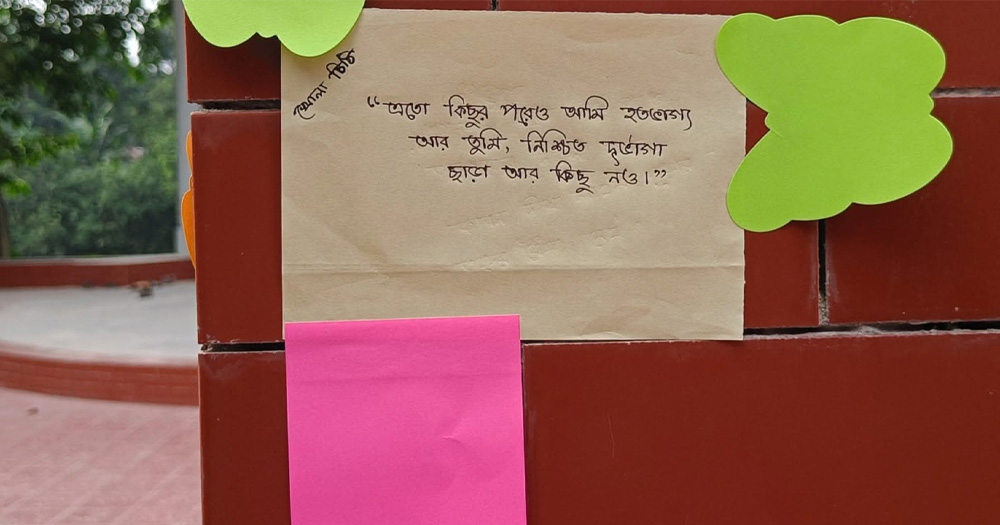 খোলা চিঠি
“এতো কিছুর পরেও আমি হতভাগ্য
আর তুমি, নিশ্চিত দুর্ভাগা
ছাড়া আর কিছু নও।”